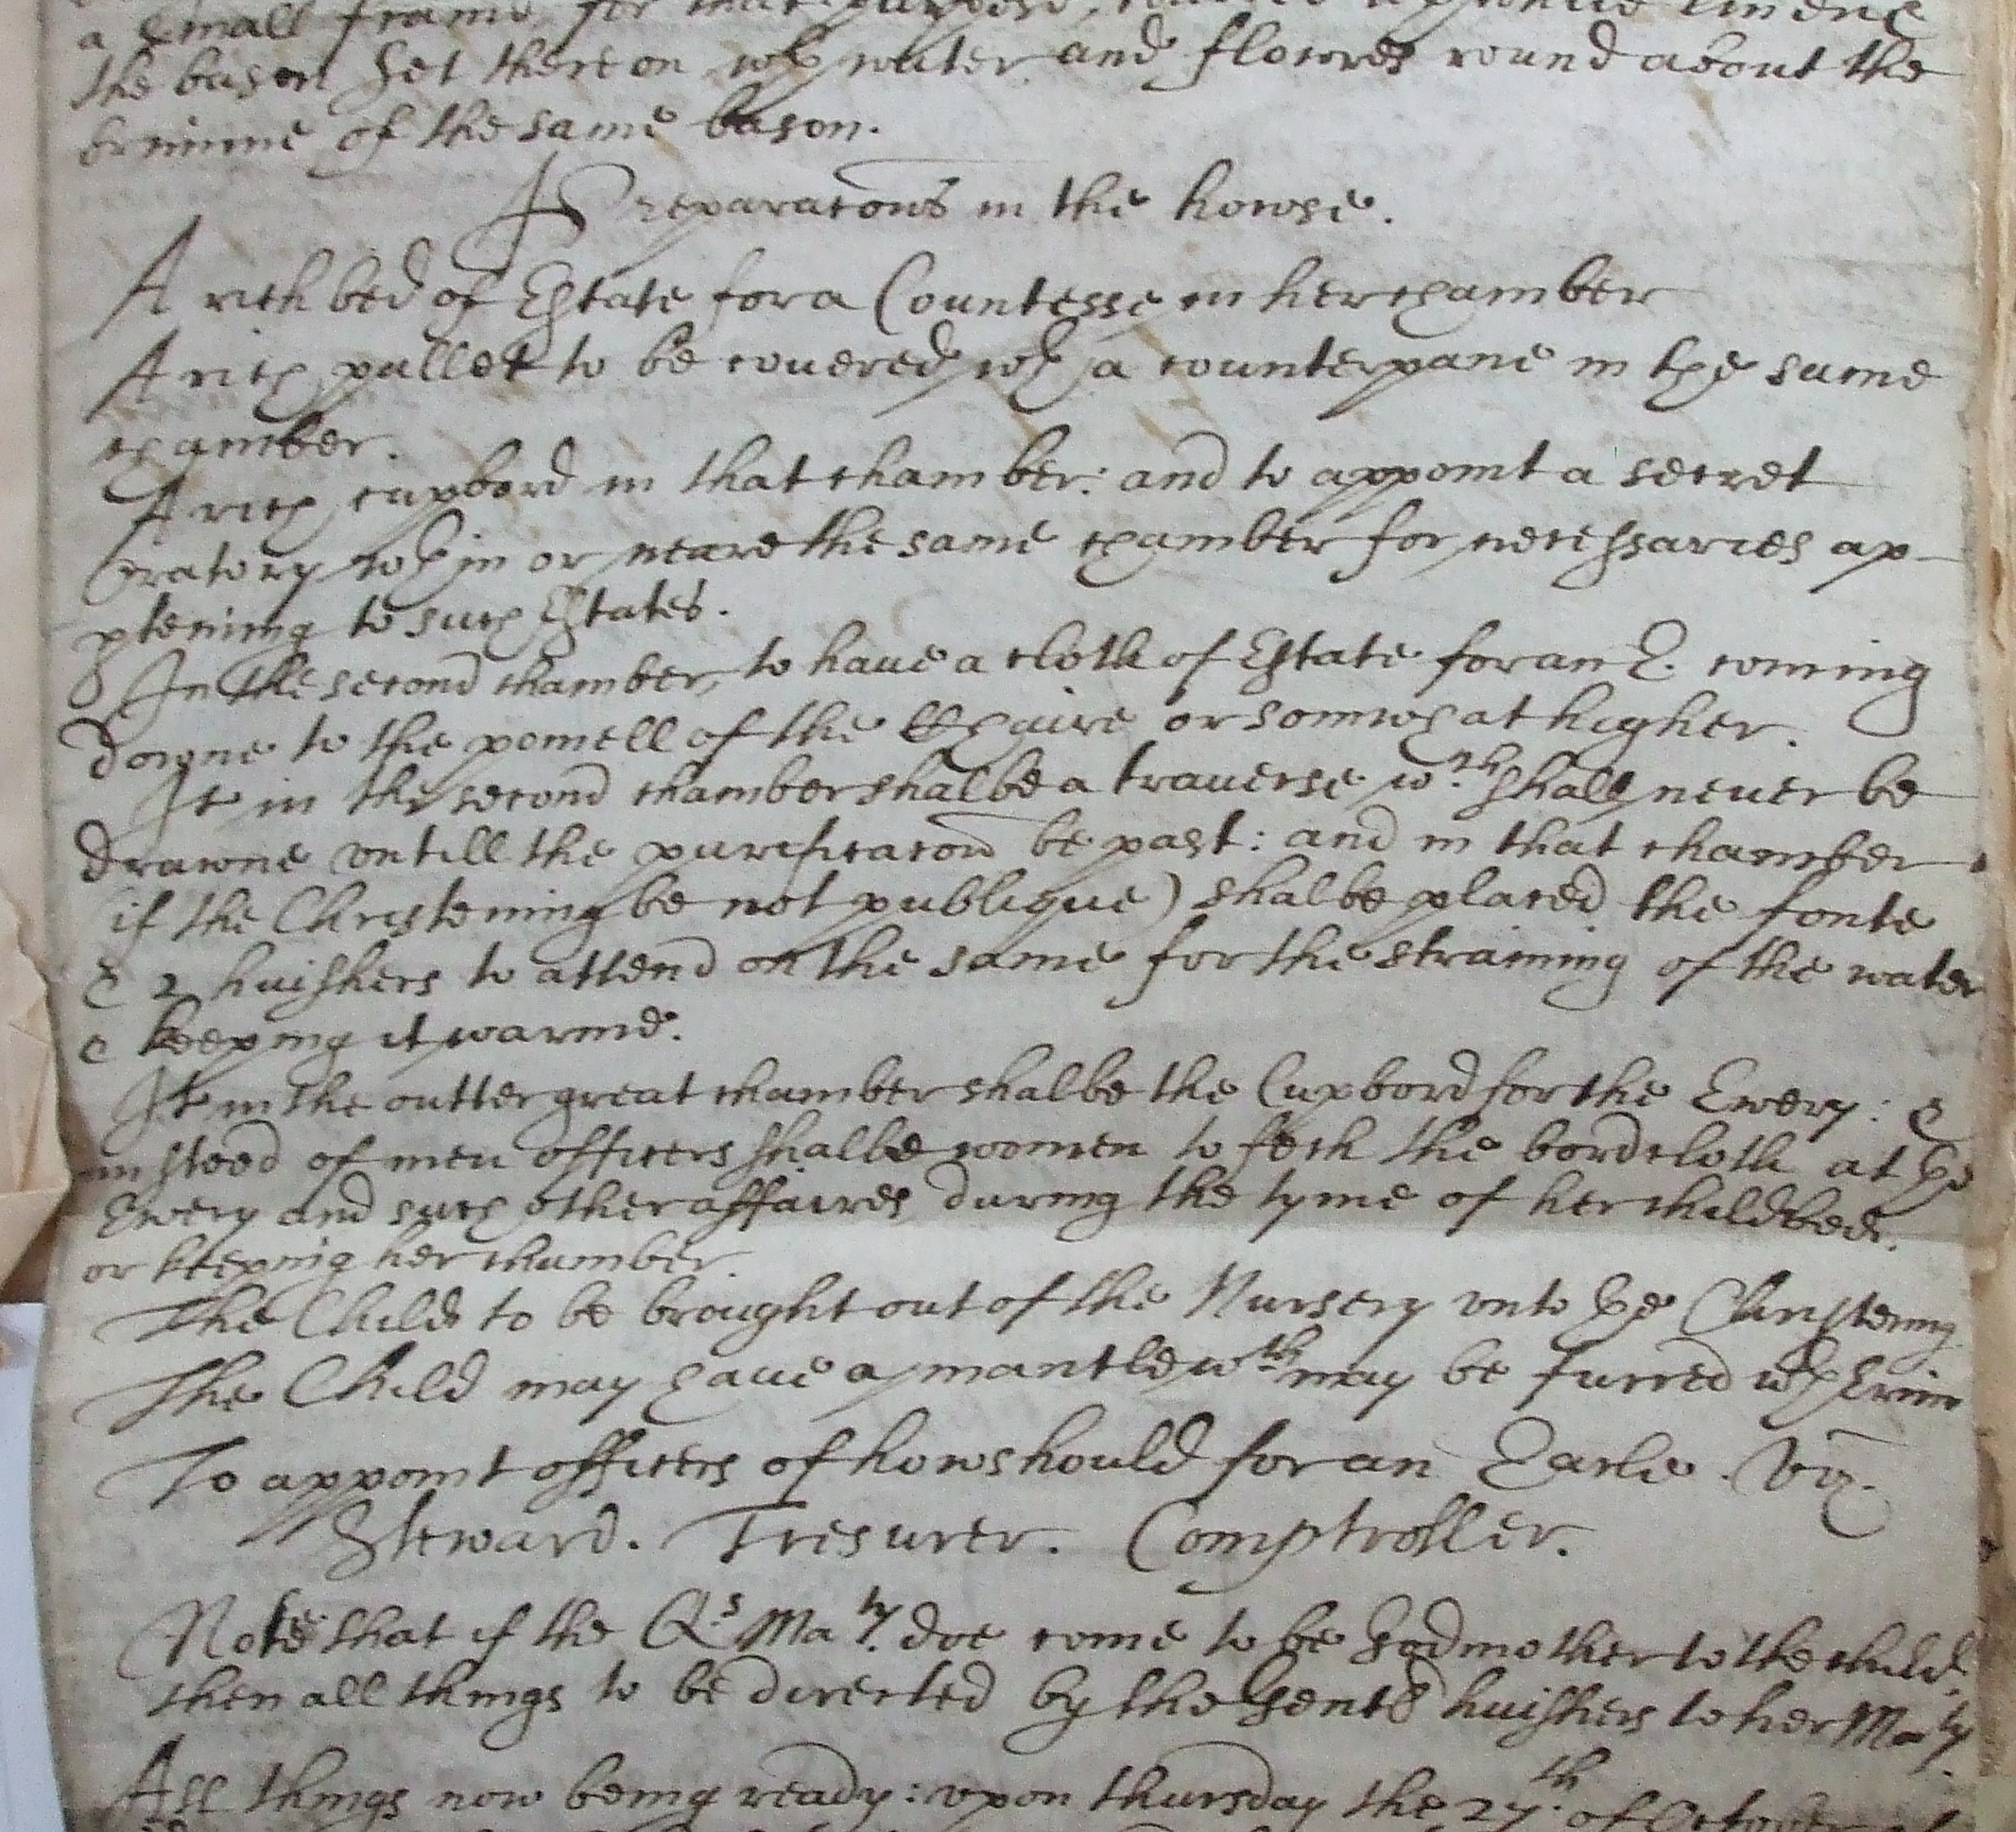 a small frame for that purpose,
the bason set thereon wth water and flowres round about the
brimme of the same bason.
Preparacons in the howse.
A rich bed of Estate for a Countesse in her chamber
A rich pallet to be couered wth a counterpane in the same
chamber.
A rich cupbord in that chamber: and to appoint a secret
Oratory wthin or neare the same chamber for necessaries ap-
ptening to such Estates.
In the second chamber, to have a cloth of Estate for an E. coming
downe to the pomell of the Chaire or somwhat higher.
It in the second chamber shalbe a trauerse wch shall neuer be
drawne vntill the purificacon be past: and in that chamber
if the Christening be not publique) shalbe placed the fonte
& 2 huishers to attend on the same for the straining of the water
& keeping it warme.
It in the outter great chamber shalbe the Cupbord for the Ewery: &
in steed of men officers shalbe women to fech the bordcloth at the
Ewery and such other affaires, during the tyme of her childbedd.
or keeping her chamber.
The Child to be brought out of the Nursery vnto the Christening
The Child may haue a mantle wch may be furred wth Ermin
To appoint officers of howshould for an Earle. Viz.
Steward. Tresurer. Comptroller.
Note that if the Qs Maty. doe come to be Godmother to the child,
then all things to be directed by the Gent8 huishers to her Maty.
All things now being ready: vpon thursday the 27th. of October